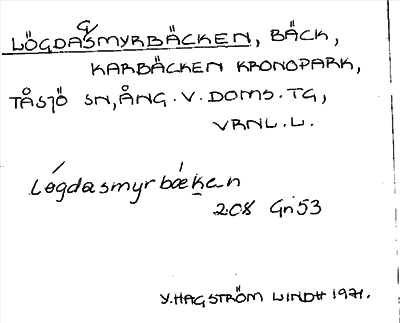 LÖGDAGSMYRBÄCKEN, BÄCK,
KARBÄCKEN KRONOPARK,
TÅSJÖ SN, ÅNG. V. DOMS. TG,
VRNL. L.
Lógdasmyrbækен
208 Gn 53
Y. HAGSTRÖM LINDH 1971.